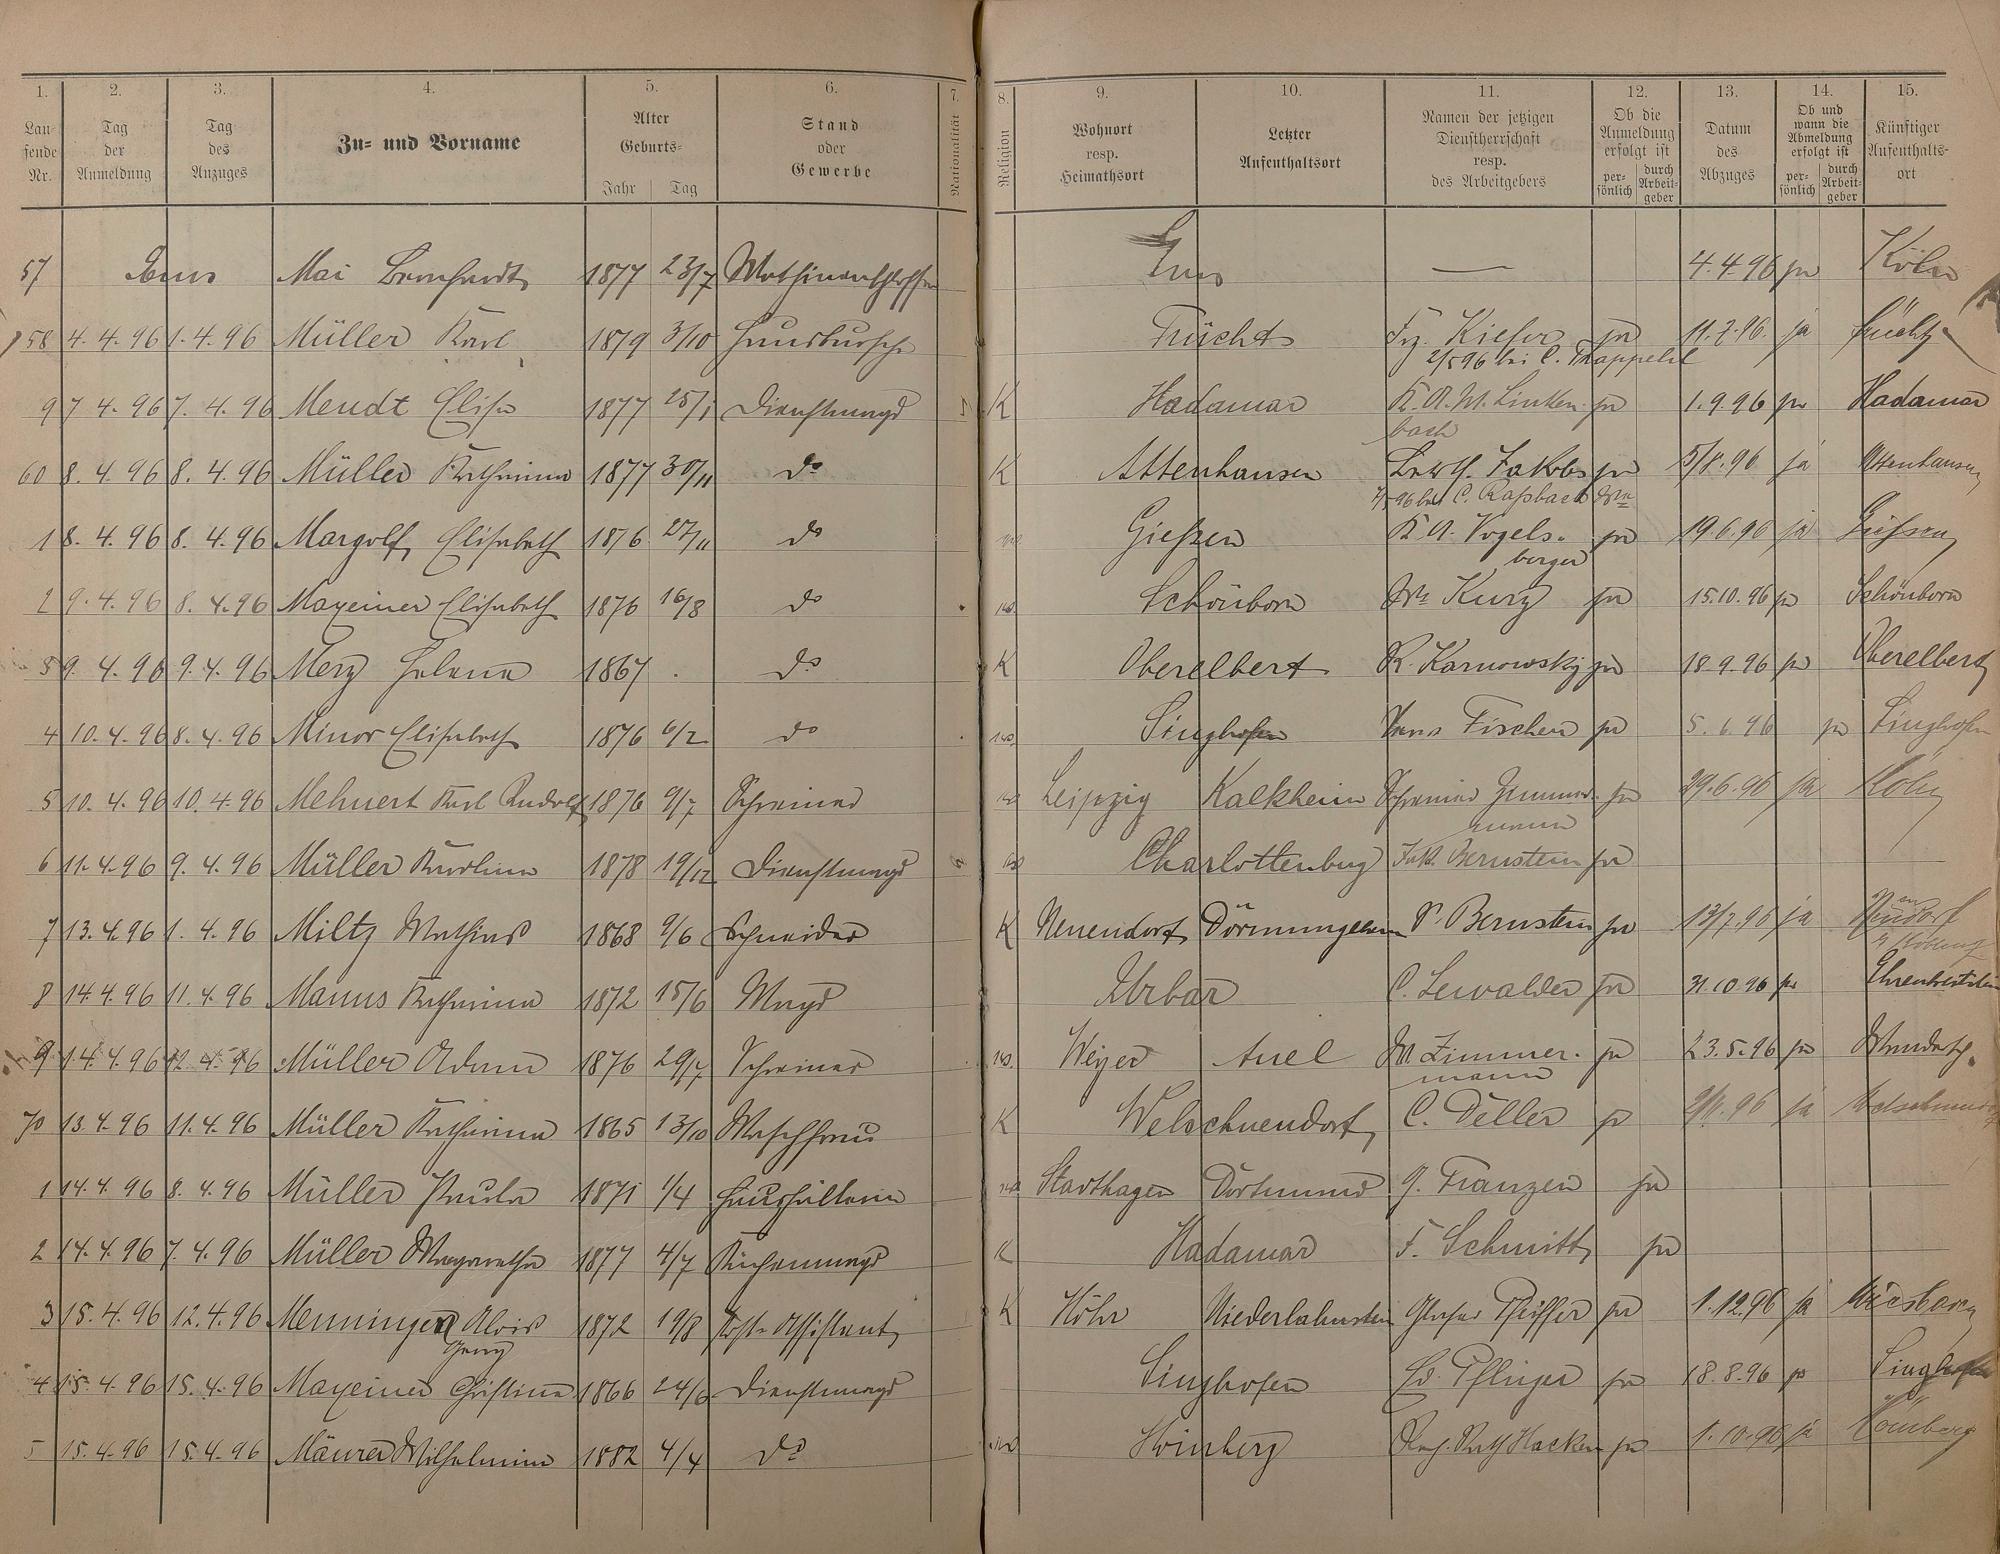 1. 2. 3. 4. 5. 6. 7. 8. 9. 10. 11. 12. 13. 14. 15.
Lau-
fende
Nr.
Tag
der
Anmeldung
Tag
des
Anzuges
Zu- und Vorname
Alter
Geburts-
Jahr Tag
Stand
oder
Gewerbe
Nationalität
Religion
Wohnort
resp.
Heimathsort
Letzter
Aufenthaltsort
Namen der jetzigen
Dienstherrschaft
resp.
des Arbeitgebers
Ob die
Anmeldung
erfolgt ist
per-
sönlich
durch
Arbeit-
geber
Datum
des
Abzuges
Ob und
wann die
Abmeldung
erfolgt ist
per-
sönlich
durch
Arbeit-
geber
Künftiger
Aufenthalts-
ort
57 Ems Mai Bernhardt 1877 23/7 Ems — 4.4.96 ja Köln
58 4.4.96 1.4.96 Müller Karl 1879 3/10 Hausbursche Frücht Frz. Kiefer ja 11.7.96 ja Frücht
2/5 96 bei C.
9 7 4. 96 7. 4. 96 Mendt Elise 1877 25/1 Dienstmagd K Hadamar K. A. W. Linken- ja 1.9.96 ja Hadamar
bach
60 8. 4. 96 8. 4. 96 Müller Katharina 1877 30/11 do K Attenhausen Jakobs ja 5/8.96 ja Attenhausen
96 bei C. Raßbach
1 8. 4. 96 8. 4. 96 Margolf Elisabeth 1876 27/11 do Gießen K. A. Vogels- ja 19.6.96 ja Gießen
berger
2 9. 4. 96 8. 4. 96 Maxeiner Elisabeth 1876 16/8 do Schönborn Kurz ja 15.10.96 ja Schönborn
3 9. 4. 96 9. 4. 96 Merz Helena 1867 do K Oberelbert K. Karnowsky ja 18.9.96 ja Oberelbert
4 10. 4. 96 8. 4. 96 Minor Elisabeth 1876 6/2 do Singhofen Fischer ja 5.6.96 ja Singhofen
5 10. 4. 96 10. 4. 96 Mehnert Karl Rudolf 1876 9/7 Schreiner Leipzig Kalkheim Schreiner Zimmer- ja 29.6.96 ja Köln
mann
6 11. 4. 96 9. 4. 96 Müller Karoline 1878 19/12 Dienstmagd Charlottenbug Jak. Bernstein ja
7 13. 4. 96 1. 4. 96 Miltz Mathias 1868 9/6 Schneider K Neuendorf P. Bernstein ja 13/7.96 ja Neuendorf
8 14. 4. 96 11. 4. 96 Manns Katharina 1872 15/6 Magd Urbar C. Lewalder ja 31.10.96 ja
9 14. 4. 96 12. 4. 96 Müller Adam 1876 29/7 Schreiner Weyer Auel W. Zimmer- ja 23.5.96 ja
mann
70 13. 4. 96 11. 4. 96 Müller Katharina 1865 13/10 Waschfrau K Welschneudorf C. Deller ja ja
1 14. 4. 96 8. 4. 96 Müller Paula 1871 1/4 Haushälterin Stadthagen Dortmund J. Franzen ja
2 14. 4. 96 7. 4. 96 Müller Margaretha 1877 4/7 Küchenmagd K Hadamar F. Schmitt ja
3 15. 4. 96 12. 4. 96 Menningen Alois 1872 19/8 Post-Assistent K Höhr Niederlahnstein Glaser Pfeiffer ja 1.12.96 ja
Georg
4 15. 4. 96 15. 4. 96 Maxeiner Christine 1866 24/6 Dienstmagd Singhofen Ed. Pflüger ja 18.8.96 ja Singhofen
5 15. 4. 96 15. 4. 96 Mäurer Wilhelmine 1882 4/4 do Hömberg Hacker ja 1.10.96 ja Hömberg